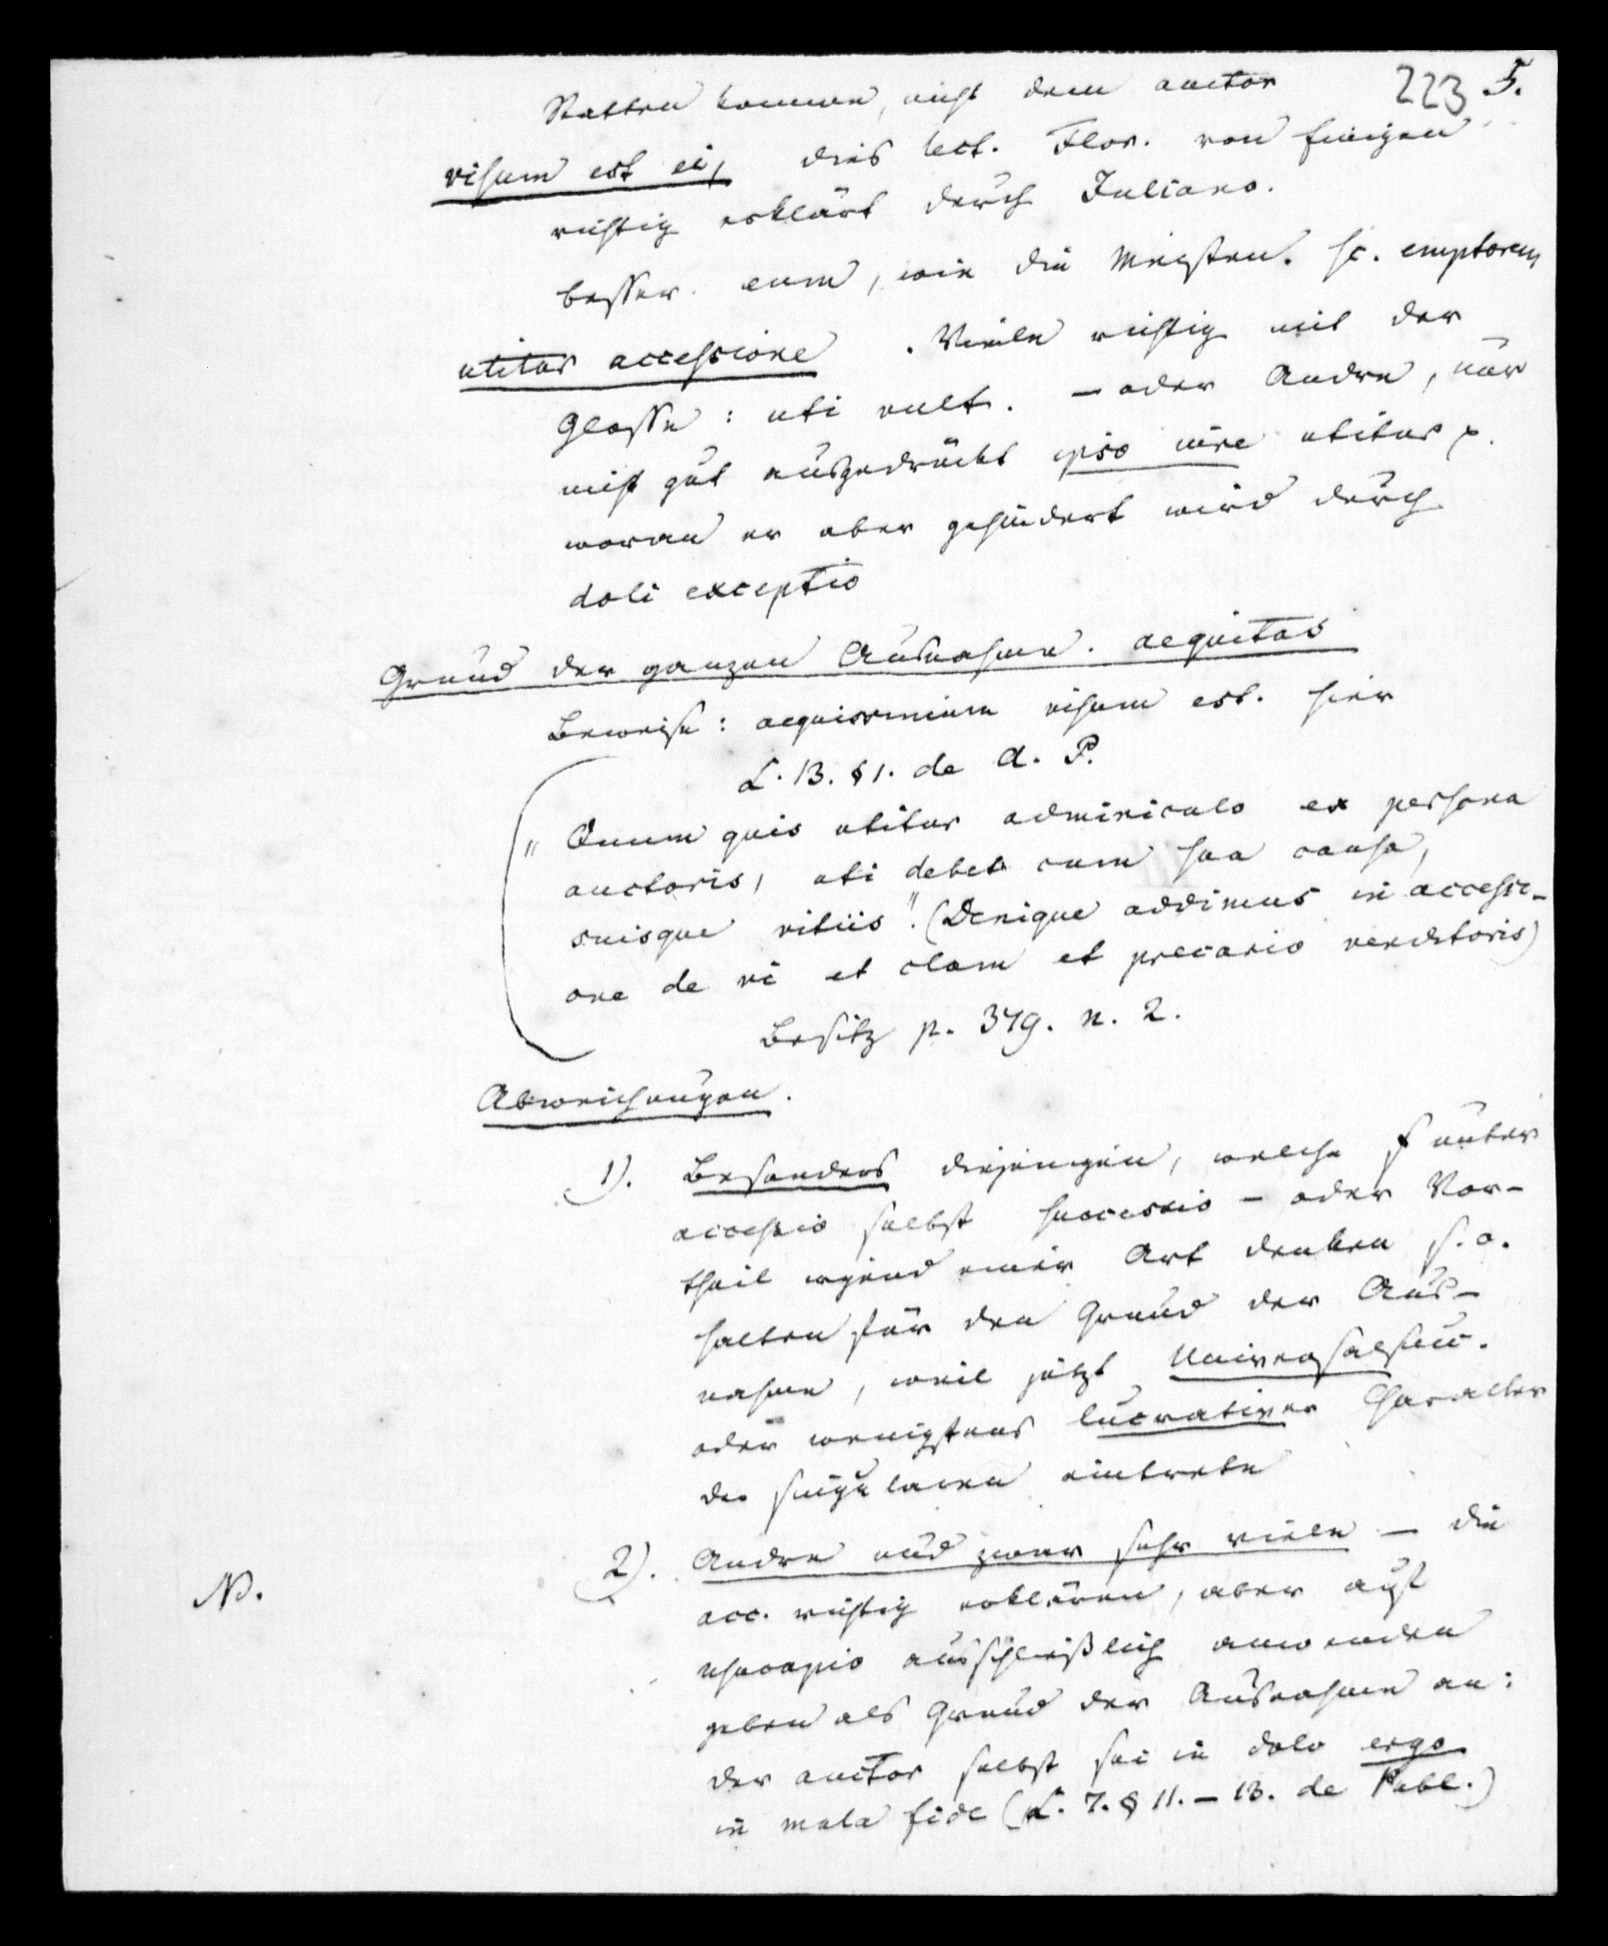 223 5.
Statten kommen, nicht dem auctor
visum est ei, dies lect. Flor. von Einigen
richtig erklärt durch Juliano.
besser eum, wie die Meisten. sc. emptorem
utitur accessione. Viele richtig mit der
Glosse: uti vult. – oder Andre, nur
nicht gut ausgedrückt ipso iure utitur
woran er aber gehindert wird durch
doli exceptio
Grund der ganzen Ausnahme. aequitas
Beweise: aequissimum visum est. hier
L. 13. § 1. de A. P.
„Quum quis utitur adminiculo ex persona
auctoris, uti debet cum sua causa,
suisque vitiis". (Denique addimus in accessi-
one de vi et clam et precario venditoris)
Besitz p. 379. n. 2.
Abweichungen.
1). Besonders diejenigen, welche unter
accessio selbst successio – oder Vor-
theil irgend einer Art denken s. o.
halten für den Grund der Aus-
nahme, weil jetzt Universalsucc.
oder wenigstens lucrativer Charakter
der singularen eintrete
2). Andre und zwar sehr viele – die
acc. richtig erklären, aber auf
usucapio ausschließlich anwenden
geben als Grund der Ausnahme an:
der auctor selbst sei in dolo ergo
in mala fide (L. 7. § 11. – 13. de Publ.)
NB.